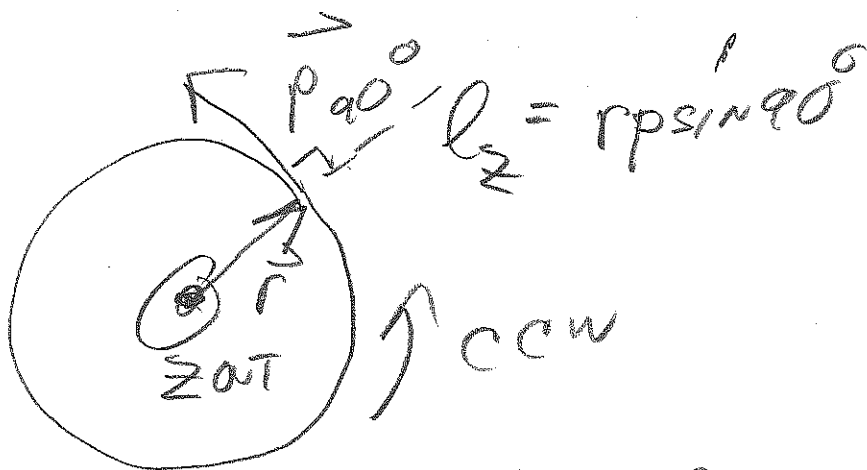 p⃗ 90° l_z = rp sin 90°
r⃗
z out
CCW